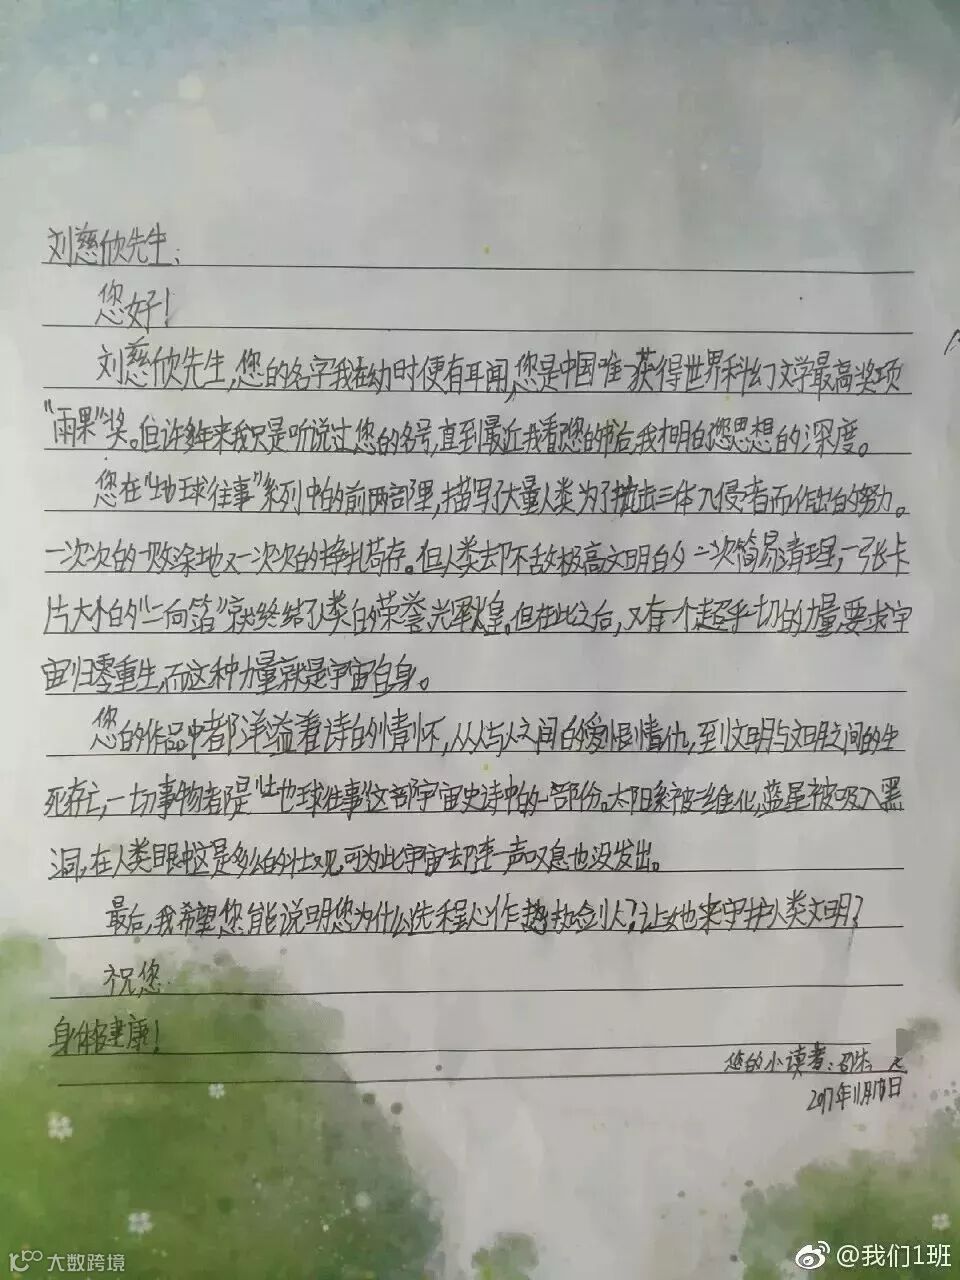 刘慈欣先生：
您好！
刘慈欣先生，您的名字我在幼时便有耳闻，您是中国唯一获得世界科幻文学最高奖项
“雨果”奖。但许多年来我只是听说过您的名号，直到最近我看您的书后，我才明白您思想的深度。
您在“地球往事”系列中的前两部里，描写了大量人类为了抗击三体入侵者而作出的努力。
一次次的一败涂地又一次次的挣扎苟存。但人类却不敌极高文明的一次简易清理，一张卡
片大小的“二向箔”就终结了人类的荣誉光辉煌。但在此之后，又有一个超乎一切的力量要求宇
宙归零重生，而这种力量就是宇宙自身。
您的作品中都洋溢着诗的情怀，从人与人之间的爱恨情仇，到文明与文明之间的生
死存亡，一切事物都是“地球往事”这部宇宙史诗中的一部份。太阳系被二维化，蓝星被吸入黑
洞，在人类眼中这是多么的壮观，可为此宇宙却连一声叹息也没发出。
最后，我希望您能说明您为什么选程心作执剑人？让她来守护人类文明？
祝您
身体健康！
您的小读者：
2017年11月18日
大数跨境
@我们1班